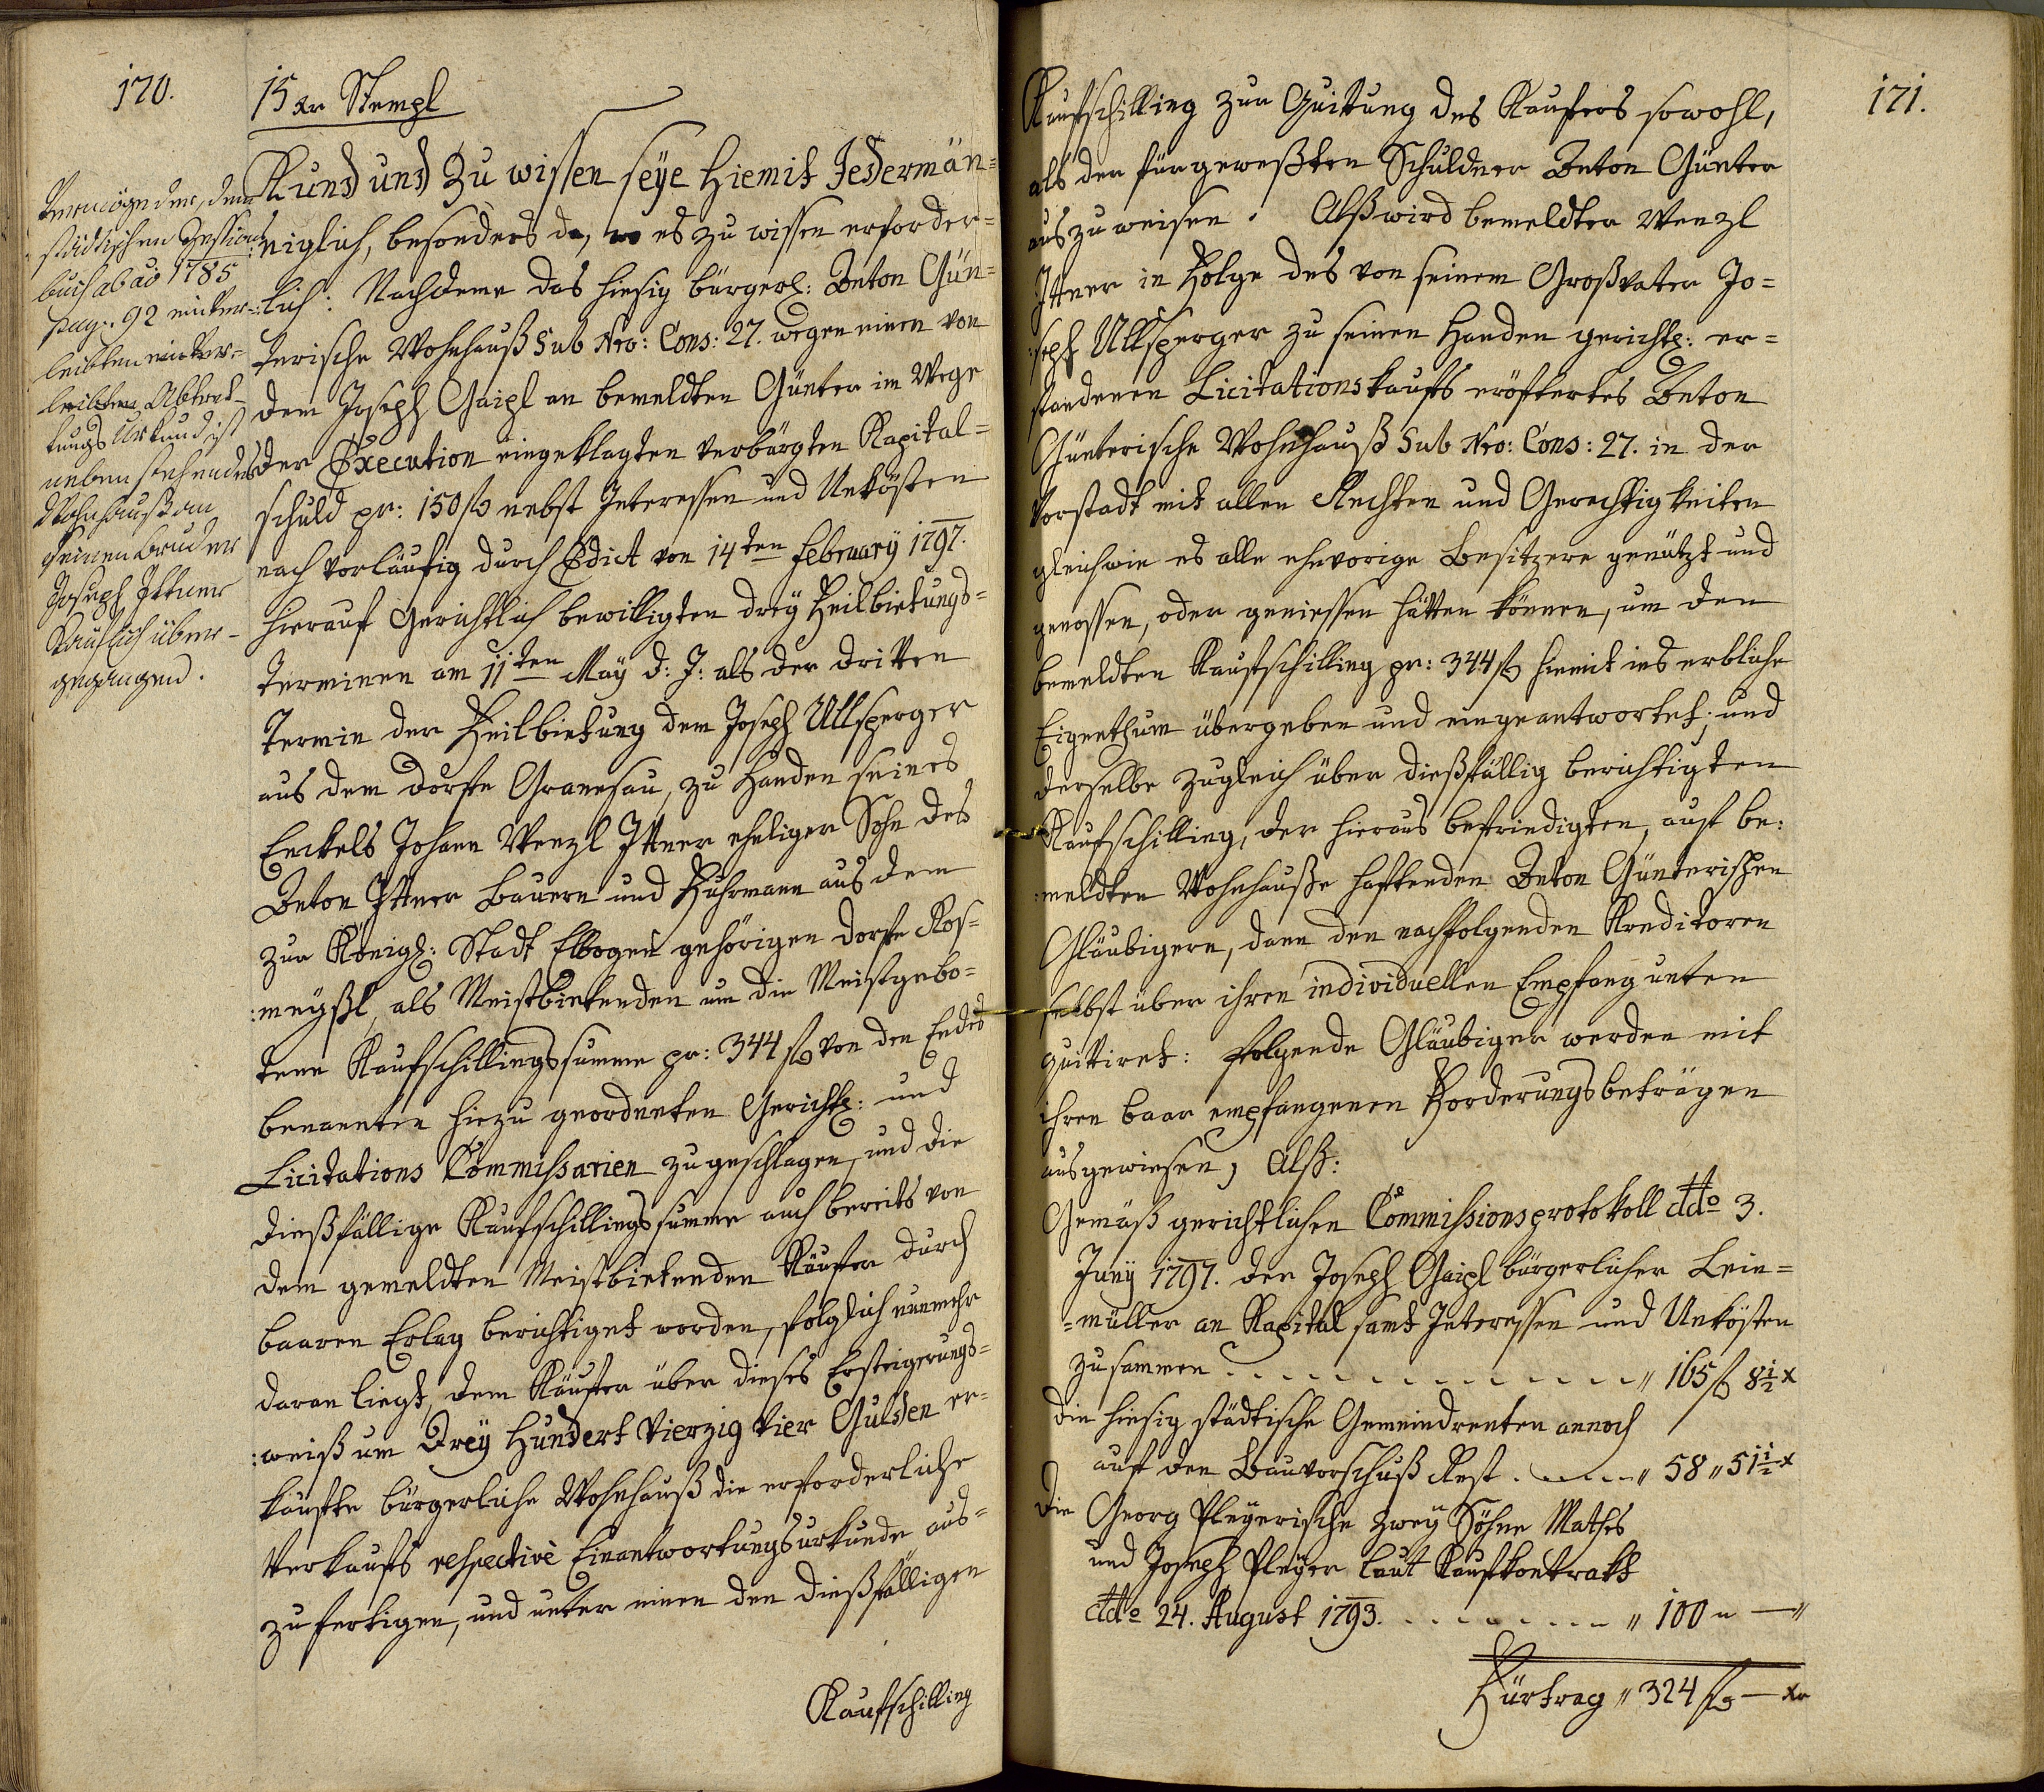 170.
15 xr Stempl
Kund und Zu wissen seÿe Hiemit Jedermän=
niglich, besonders da, wo es zu wissen erforder=
lich: Nachdeme das hiesig bürgerl: Anton Gün=
terische Wohnhauß Sub Nro: Cons: 27. wegen einen von
dem Joseph Gaipl an bemeldten Günter im Wege
der Execution eingeklagten verbürgten Kapital=
schuld pr: 150 f nebst Interessen und Unkösten
nach vorläufig durch Edict von 14ten Februarÿ 1797.
hierauf Gerichtlich bewilligten dreÿ Feilbietungs=
Terminen am 11ten Maÿ d: J: als der dritten
Termin der Feilbietung dem Joseph Ullsperger
aus dem Dorfe Granesau, zu Handen seines
Enckels Johann Wenzl Ittner eheliger Sohn des
Anton Ittner Bauern und Fuhrmann aus dem
zur Königl: Stadt Elbogen gehörigen Dorfe Ros=
:meÿßl, als Meistbietenden um die Meistgebo=
tene Kaufschillingssumme pr: 344 f von den Endes
benannten hiezu geordneten Gerichtl: und
Licitations Commissarien zugeschlagen, und die
dießfällige Kaufschillingssumme auch bereits von
dem gemeldten Meistbietenden Käufer durch
baaren Erlag berichtiget worden, folglich nunmehr
daran liegt, dem Käufer über dieses Ersteigerungs=
:weiß um Dreÿ Hundert Vierzig Vier Gulden er=
kaufte bürgerliche Wohnhauß die erforderliche
Verkaufs respective Einantwortungsurkunde aus=
zufertigen, und unter einen den dießfälligen
Kaufschilling
Vermög der, dem
städtischen Zessions
buch ab ao 1785
pag: 92 einver=
leibten einver=
leibten Abtret=
tungs Urkund ist
nebenstehendes
Wohnhauß an
seinen Bruder
Joseph Ittner
Käuflich über=
gegangen.
171.
Kaufschilling zur Quittung des Kaufers sowohl,
als der für geweßten Schuldner Anton Günter
auszuweisen. Alß wird bemeldter Wenzl
Ittner in Folge des von seinem Großvater Jo=
:seph Ullsperger zu seinen Handen gerichtl: er=
standenen Licitationskaufs eröftertes Anton
Günterische Wohnhauß Sub Nro: Cons: 27. in der
Vorstadt mit allen Rechten und Gerechtigkeiten
gleichwie es alle ehevorige Besitzere genützt und
genossen, oder geniessen hätten können, um den
bemeldten Kaufschilling pr: 344 f hiemit ins erbliche
Eigenthum übergeben und eingeantwortet; und
derselbe zugleich über dießfällig berichtigten
Kaufschilling, der hieraus befriedigten, auf be:
:meldten Wohnhauße haftenden Anton Günterischen
Gläubigern, dann den nachfolgenden Kreditoren
selbst über ihren individuellen Empfang unten
quittiret: folgende Gläubiger werden mit
ihren baar empfangenen Forderungsbeträgen
ausgewiesen, Alß:
Gemäß gerichtlichen Commissionsprotokoll ddo 3.
Junÿ 1797. der Joseph Gaipl bürgerlicher Lein=
=müller an Kapital samt Interessen und Unkösten
zusammen . . . . . . . . . . . . „ 165 f 8½ x
die hiesig städtische Gemeindrenten annoch
auf den Bauvorschuß Rest . . . . . „ 58 „ 51½ x
die Georg Pleÿerische Zweÿ Söhne Mathes
und Joseph Pleÿer laut Kaufkontrakt
ddo 24. August 1793. . . . . . . . . „ 100 „ — „
Fürtrag „ 324 f — xr